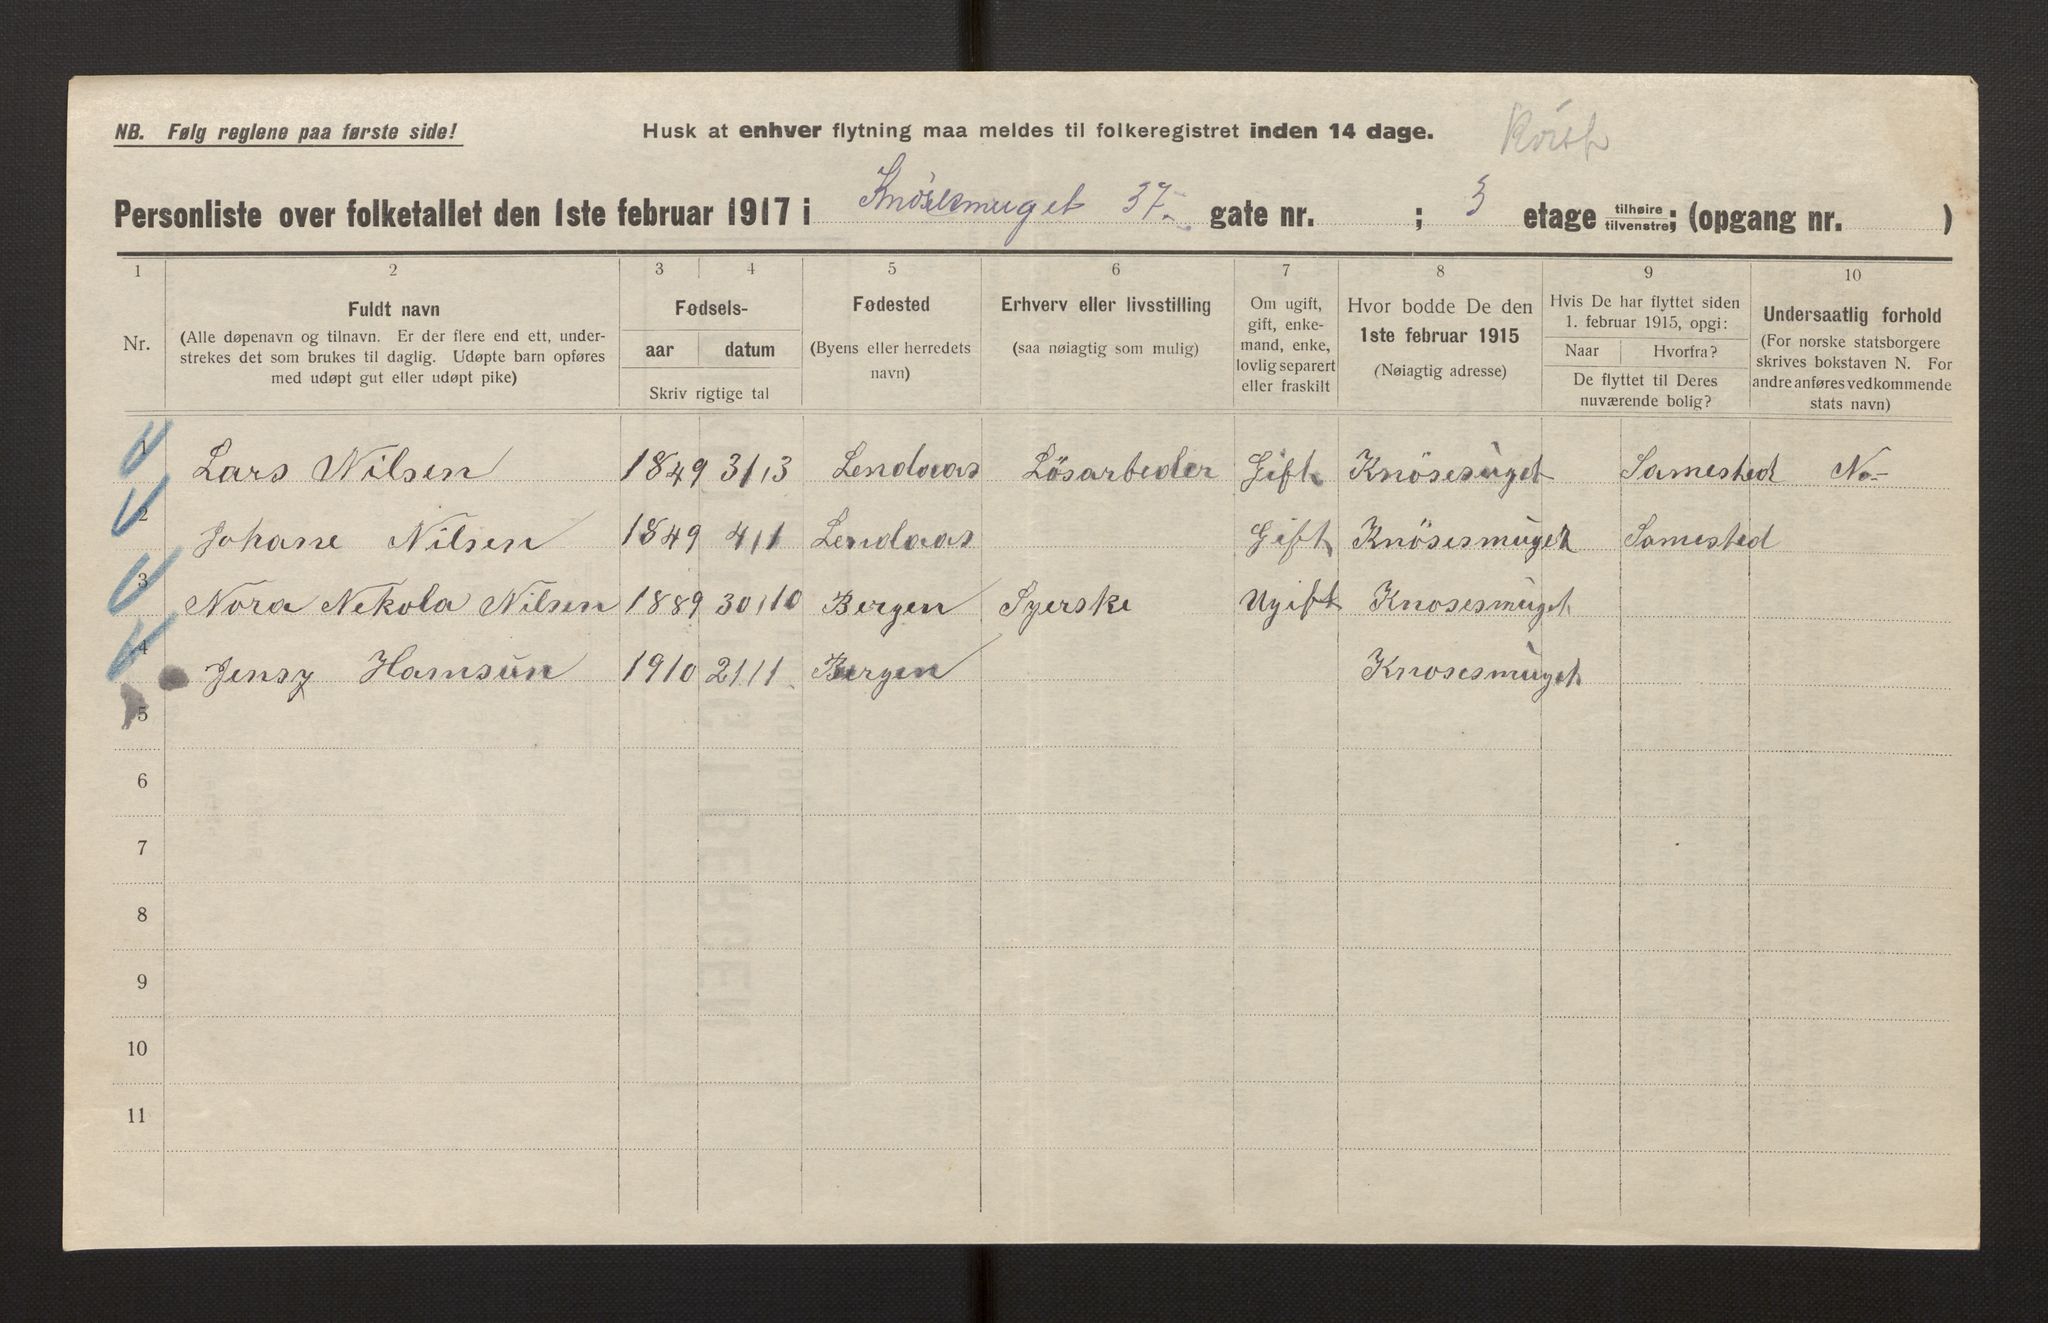 NB. Følg reglene paa første side!
Husk at enhver flytning maa meldes til folkeregistret inden 14 dage.
Personliste over folketallet den 1ste februar 1917 i Knösesmuget 37 gate nr. ; 3 etage tilhøire tilvenstre; (opgang nr. )
1 2 3 4 5 6 7 8 9 10
Nr.
Fuldt navn
(Alle døpenavn og tilnavn. Er der flere end ett, under-
strekes det som brukes til daglig. Udøpte barn opføres
med udøpt gut eller udøpt pike)
Fødsels-
aar datum
Skriv rigtige tal
Fødested
(Byens eller herredets
navn)
Erhverv eller livsstilling
(saa nøiagtig som mulig)
Om ugift,
gift, enke-
mand, enke,
lovlig separert
eller fraskilt
Hvor bodde De den
1ste februar 1915
(Nøiagtig adresse)
Hvis De har flyttet siden
1. februar 1915, opgi:
Naar Hvorfra?
De flyttet til Deres
nuværende bolig?
Undersaatlig forhold
(For norske statsborgere
skrives bokstaven N. For
andre anføres vedkommende
stats navn)
1 Lars Nilsen 1849 31/3 Lendaas Lösarbeder Gift Knösesuget Samested No-
2 Johane Nilsen 1849 4/1 Lendaas Gift Knösesmuget Samested
3 Nora Nekola Nilsen 1889 30/10 Bergen Syerske Ugift Knosesmuget
4 Jensy Hamsun 1910 21/1 Bergen Knosesmuget
5
6
7
8
9
10
11